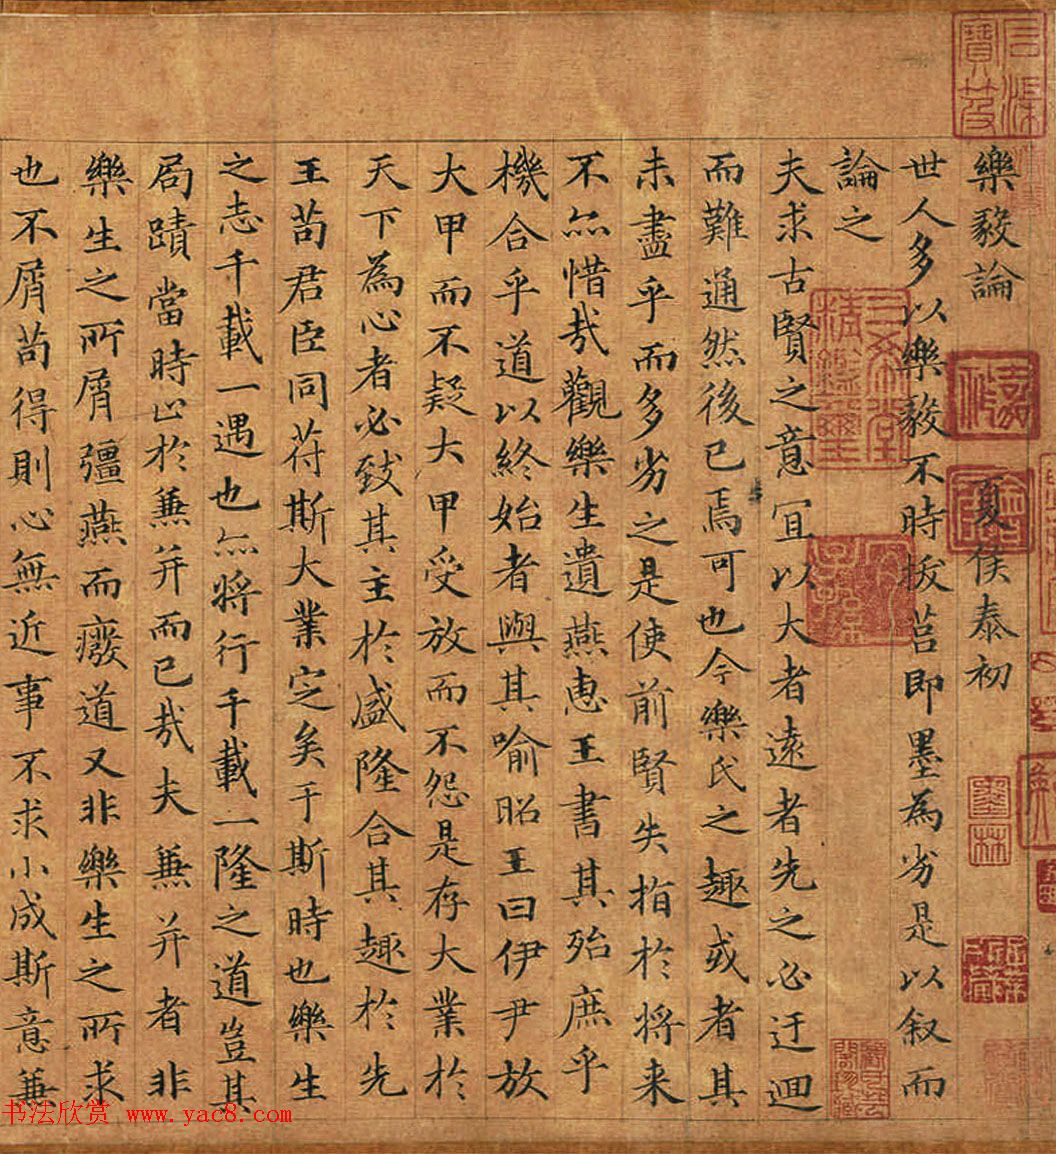 樂毅論 夏侯泰初
世人多以樂毅不時拔莒即墨為劣是以叙而
論之
夫求古賢之意宜以大者遠者先之必迂迴
而難通然後已焉可也今樂氏之趣或者其
未盡乎而多劣之是使前賢失指於將来
不亦惜哉觀樂生遺燕惠王書其殆庶乎
機合乎道以終始者與其喻昭王曰伊尹放
大甲而不疑大甲受放而不怨是存大業於
天下為心者必致其主於盛隆合其趣於先
王苟君臣同苻斯大業定矣于斯時也樂生
之志千載一遇也亦將行千載一隆之道豈其
局蹟當時止於兼并而已哉夫兼并者非
樂生之所屑彊燕而癈道又非樂生之所求
也不屑苟得則心無近事不求小成斯意兼
三希堂精鑑璽
宜子孫
墨林
书法欣赏 www.yac8.com